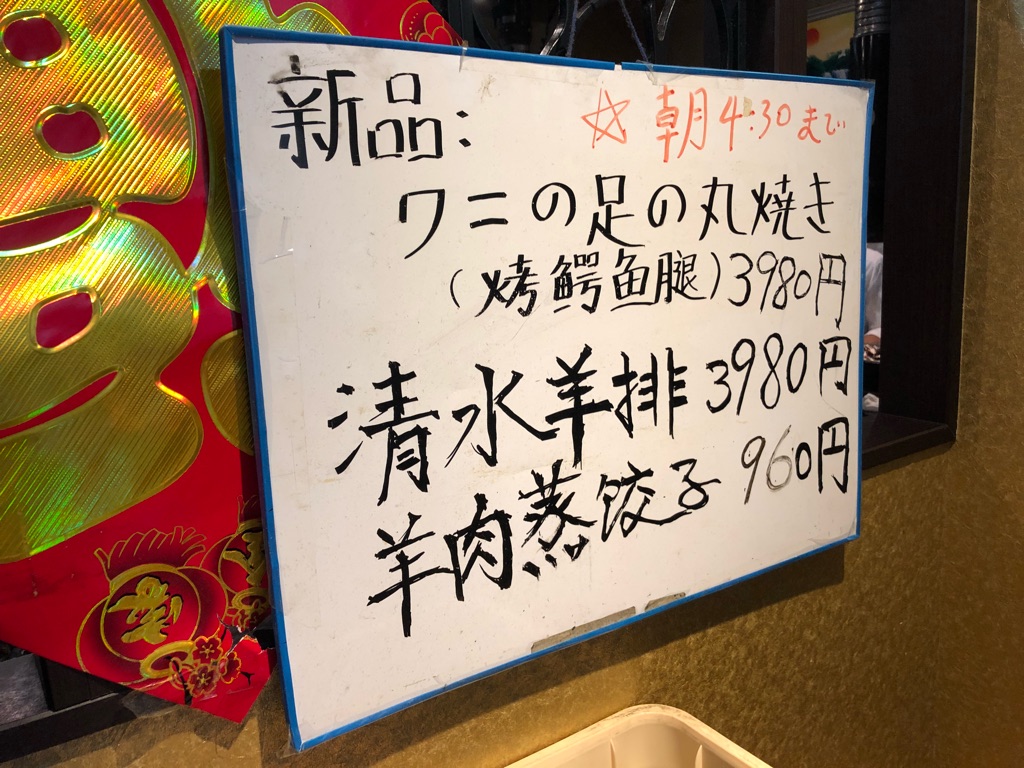 新品:
☆ 朝4:30まで
ワニの足の丸焼き
(烤鳄鱼腿)3980円
清水羊排 3980円
羊肉蒸饺子 960円